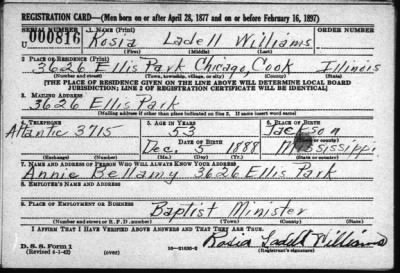 REGISTRATION CARD—(Men born on or after April 28, 1877 and on or before February 16, 1897)
SERIAL NUMBER 1. NAME (Print) ORDER NUMBER
U000816 Rosia Ladell Williams
(First) (Middle) (Last)
2. PLACE OF RESIDENCE (Print)
3626 Ellis Park Chicago, Cook Illinois
(Number and street) (Town, township, village, or city) (County) (State)
[THE PLACE OF RESIDENCE GIVEN ON THE LINE ABOVE WILL DETERMINE LOCAL BOARD
JURISDICTION; LINE 2 OF REGISTRATION CERTIFICATE WILL BE IDENTICAL]
3. MAILING ADDRESS
3626 Ellis Park
[Mailing address if other than place indicated on line 2. If same insert word same]
4. TELEPHONE 5. AGE IN YEARS 6. PLACE OF BIRTH
Atlantic 3715 53 Jackson
DATE OF BIRTH (Town or county)
Dec. 5 1888 Mississippi
(Exchange) (Number) (Mo.) (Day) (Yr.) (State or country)
7. NAME AND ADDRESS OF PERSON WHO WILL ALWAYS KNOW YOUR ADDRESS
Annie Bellamy 3626 Ellis Park
8. EMPLOYER'S NAME AND ADDRESS
9. PLACE OF EMPLOYMENT OR BUSINESS
Baptist Minister
(Number and street or R. F. D. number) (Town) (County) (State)
I AFFIRM THAT I HAVE VERIFIED ABOVE ANSWERS AND THAT THEY ARE TRUE.
D. S. S. Form 1
(Revised 4-1-42) (over) Rosia Ladell Williams
(Registrant's signature)